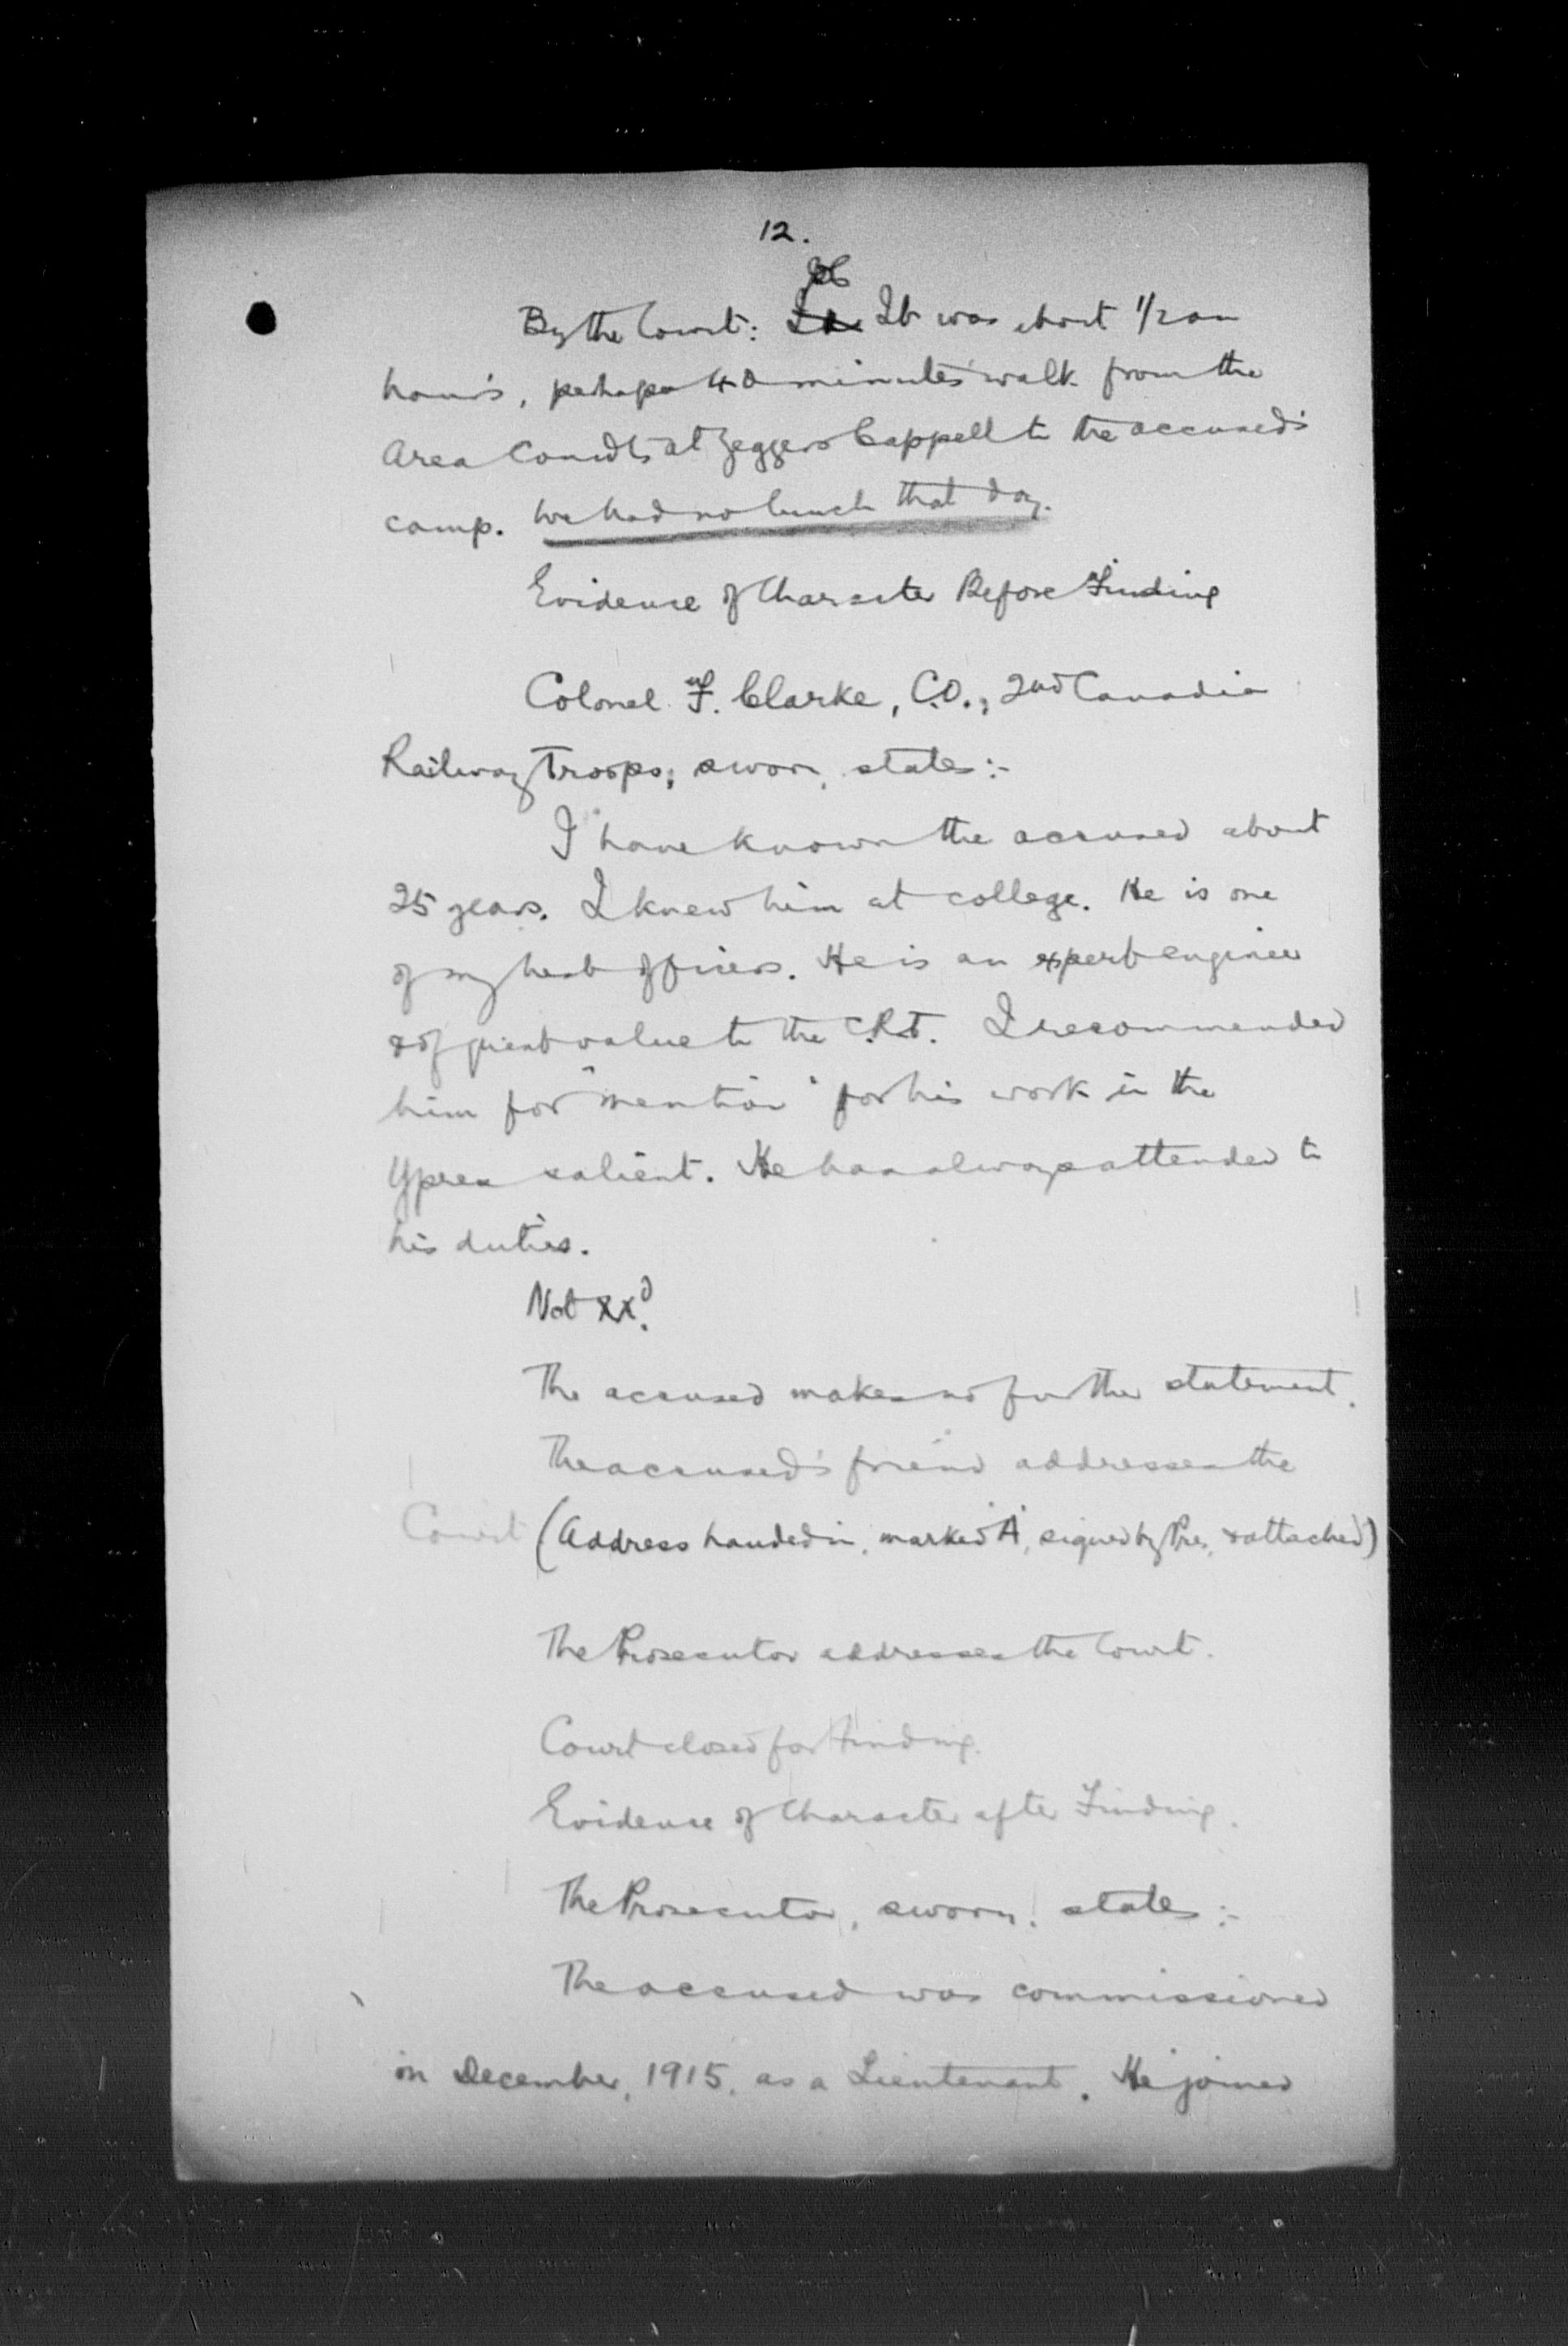 12.
By the Court: It was about 1/2 an
hour's, perhaps 40 minutes' walk from the
Area Comdt's at Zeggers Cappell to the accused's
camp. We had no lunch that day.
Evidence of Character Before Finding
Colonel F. Clarke, C.O., 2nd Canadia
Railway Troops, sworn, states:-
I have known the accused about
25 years. I knew him at college. He is one
of my best officers. He is an expert engineer
& of great value to the C.R.T. I recommended
him for "mention" for his work in the
Ypres salient. He has always attended to
his duties.
Not xxd.
The accused makes no further statement.
The accused's friend addresses the
Court (Address handed in, marked "A", signed by Pres, & attached)
The Prosecutor addresses the Court.
Court closed for Finding.
Evidence of Character after Finding.
The Prosecutor, sworn, states:-
The accused was commissioned
in December, 1915, as a Lieutenant. He joined